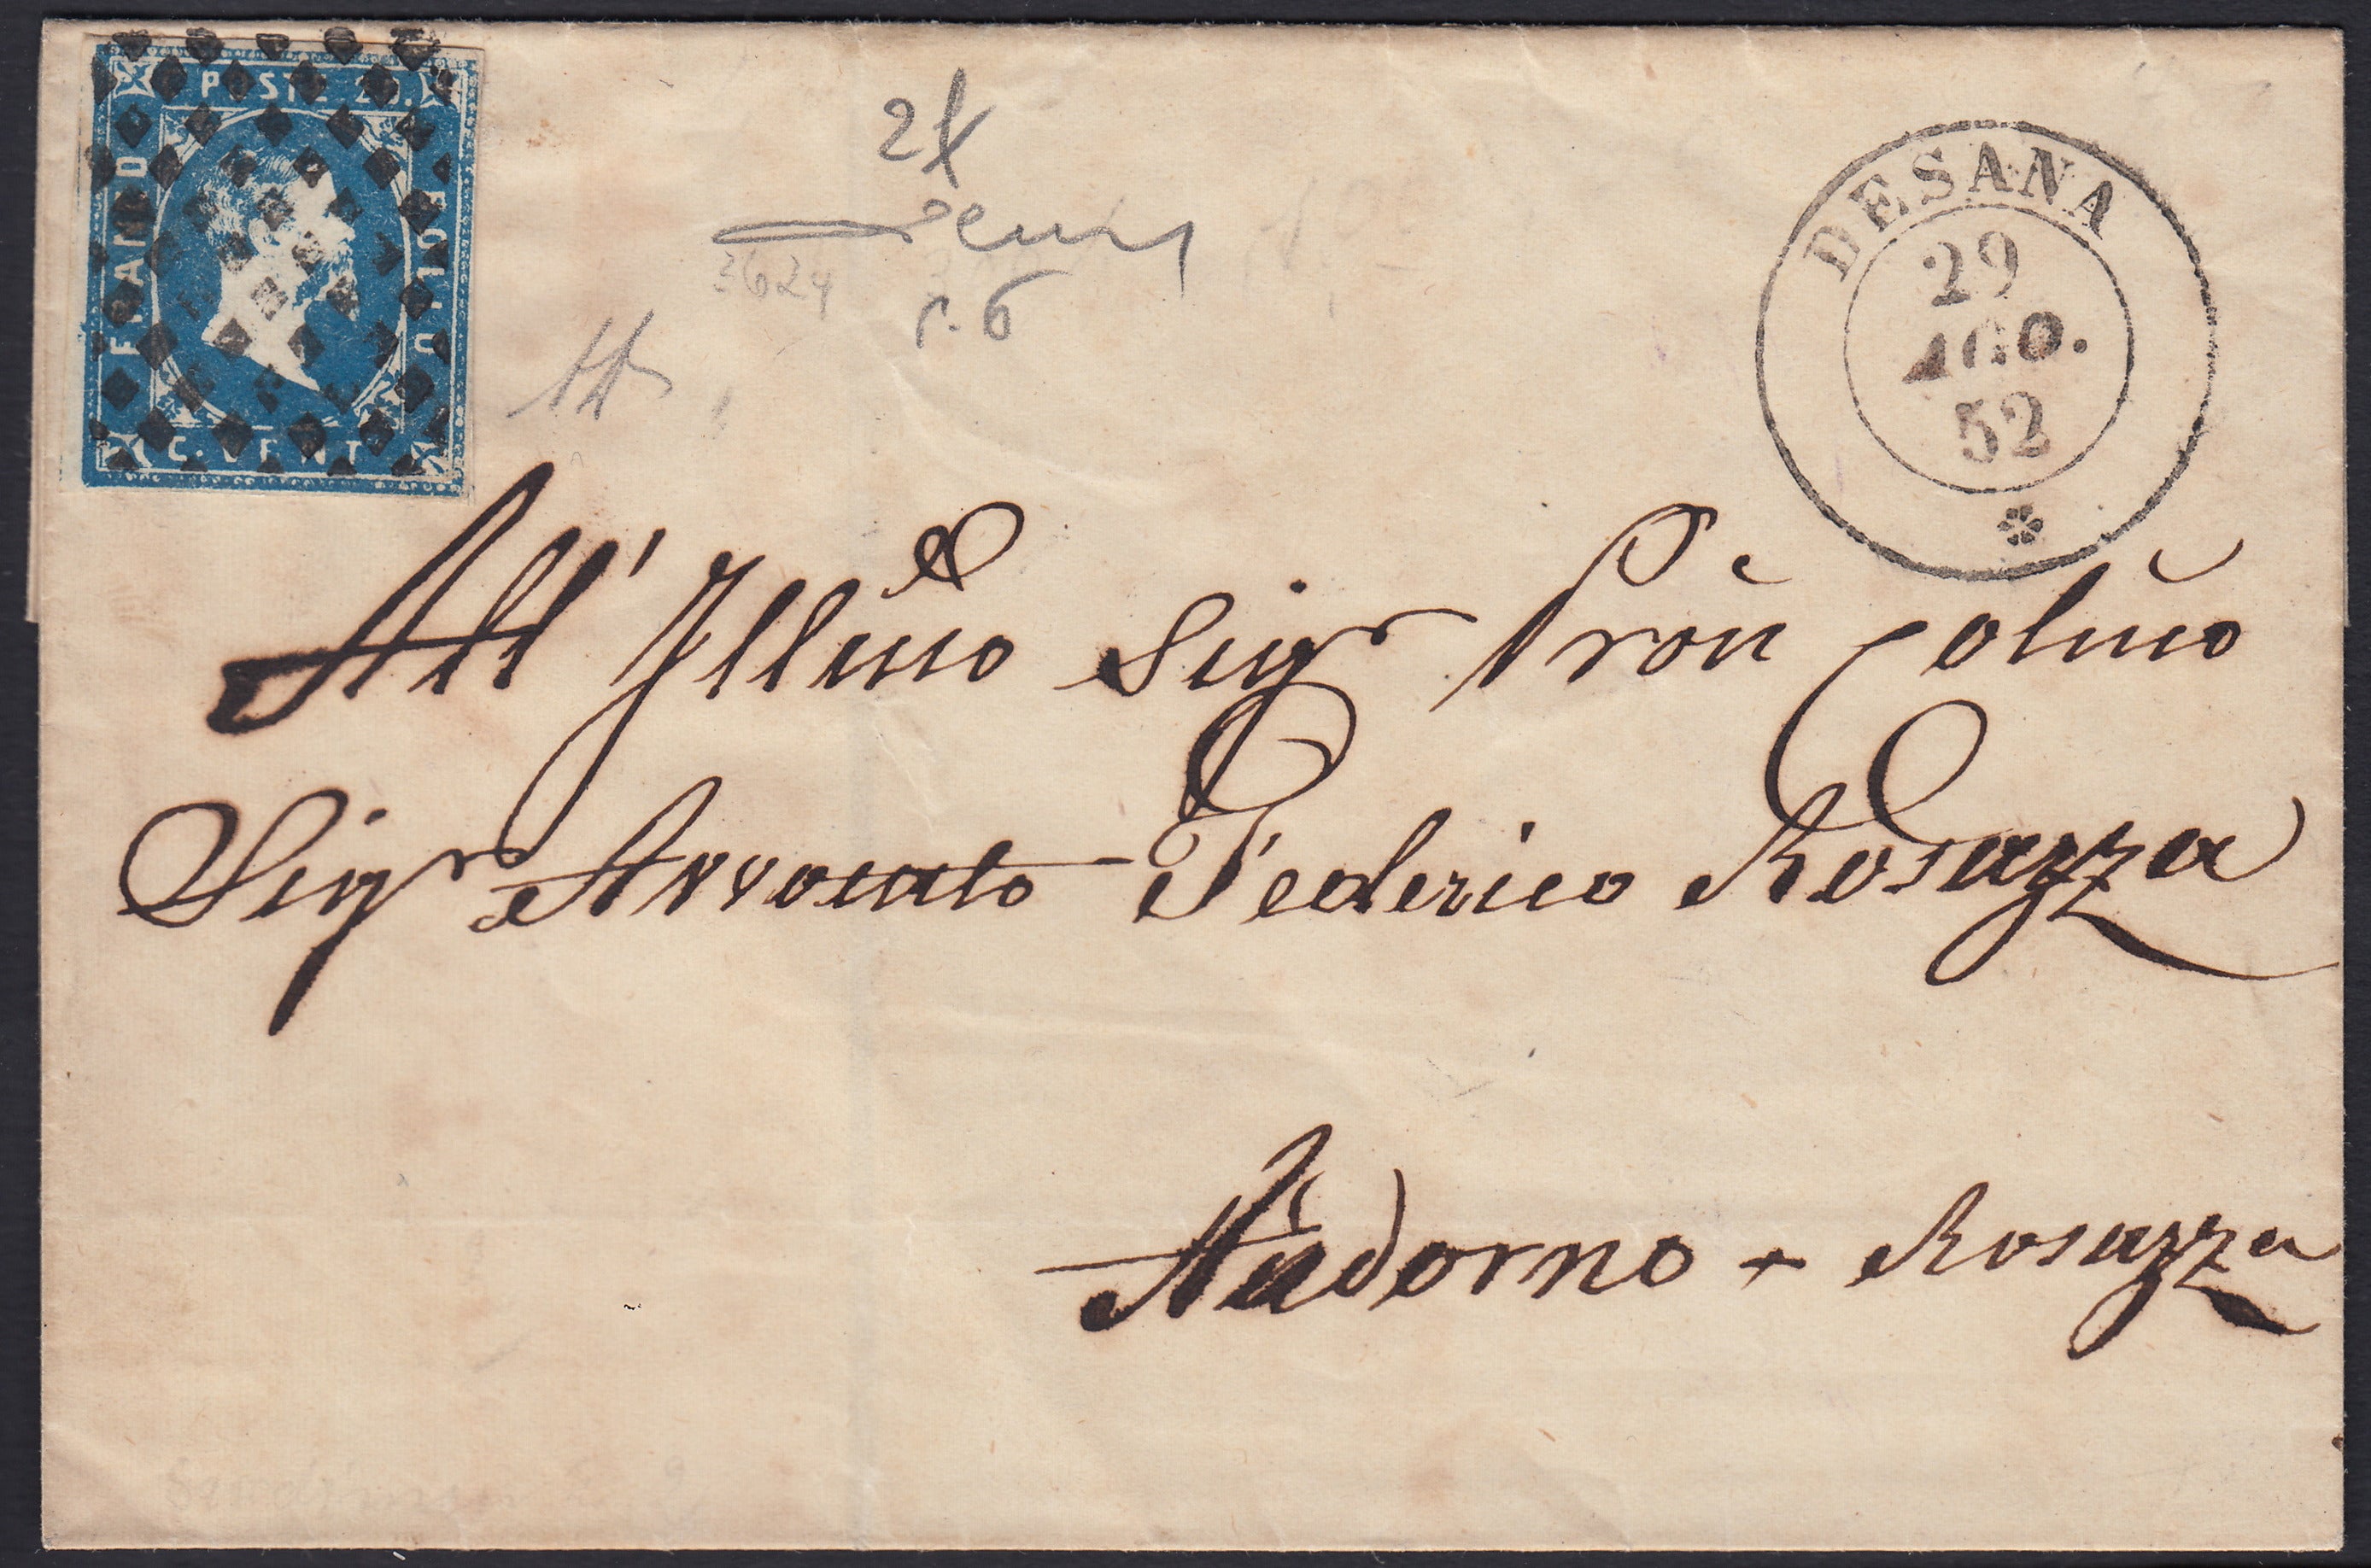 POSTE 20.
FRANCO
BOLLO
C. VENTI
DESANA
29
AGO.
52
2
3624
r. 6
All' Illmo Sigr Pron Colmo
Sigr Avvocato Federico Rosazza
Andorno + Rosazza